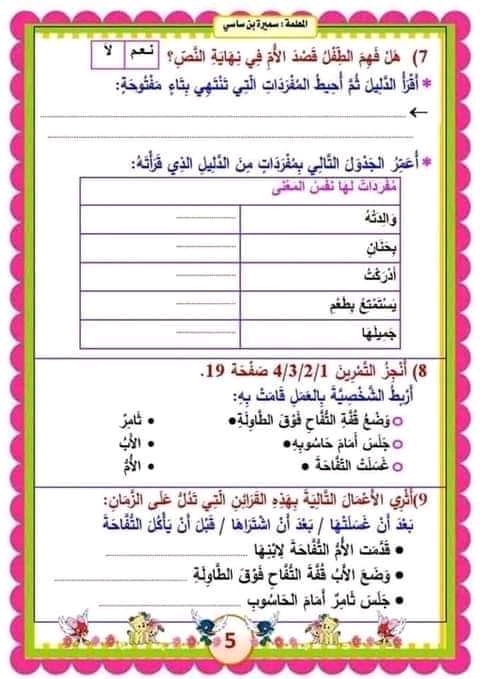 المعلمة : سميرة بن ساسي
7) هَلْ فَهِمَ الطِّفْلُ قَصْدَ الأُمِّ فِي نِهَايَةِ النَّصِّ؟ نعم لا
* أَقْرَأُ الدَّلِيلَ ثُمَّ أُحِيطُ المُفْرَدَاتِ الَّتِي تَنْتَهِي بِتَاءٍ مَفْتُوحَةٍ:
←
* أُعَمِّرُ الجَدْوَلَ التَّالِي بِمُفْرَدَاتٍ مِنَ الدَّلِيلِ الذِي قَرَأْتُهُ:
مُفْرَدَاتٌ لَهَا نَفْسُ المَعْنَى
وَالِدَتُهُ
بِحَنَانٍ
أَدْرَكَتْ
يَسْتَمْتِعُ بِطَعْمِ
جَمِيلَهَا
8) أُنْجِزُ التَّمْرِينَ 4/3/2/1 صَفْحَة 19.
أَرْبِطُ الشَّخْصِيَّةَ بِالعَمَلِ قَامَتْ بِهِ:
وَضْعُ قُفَّةِ التُّفَّاحِ فَوْقَ الطَّاوِلَةِ • • ثَامِرٌ
جَلَسَ أَمَامَ حَاسُوبِهِ • • الأَبُ
غَسَلَتْ التُّفَّاحَةَ • • الأُمُّ
9) أُثْرِي الأَعْمَالَ التَّالِيَةَ بِهَذِهِ القَرَائِنِ الَّتِي تَدُلُّ عَلَى الزَّمَانِ:
بَعْدَ أَنْ غَسَلَتْهَا / بَعْدَ أَنْ اشْتَرَاهَا / قَبْلَ أَنْ يَأْكُلَ التُّفَّاحَةَ
• قَدَّمَت الأُمُّ التُّفَّاحَةَ لِابْنِهَا
• وَضَعَ الأَبُ قُفَّةَ التُّفَّاحِ فَوْقَ الطَّاوِلَةِ
• جَلَسَ ثَامِرٌ أَمَامَ الحَاسُوبِ
5